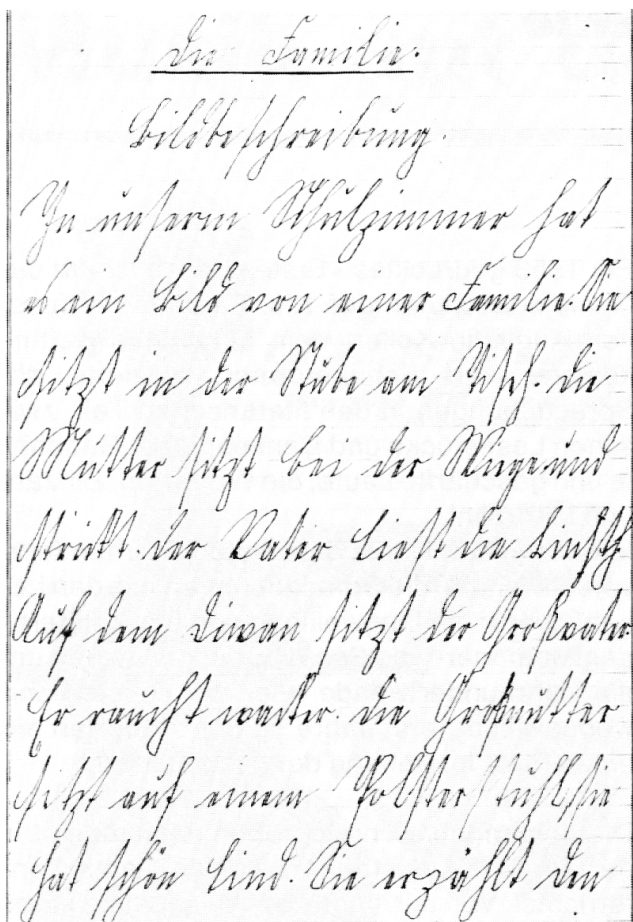 Die Familie.
Bildbeschreibung.
In unserm Schulzimmer hat
es ein Bild von einer Familie. Sie
sitzt in der Stube am Tisch. Die
Mutter sitzt bei der Wiege und
strickt. Der Vater liest die
Auf dem Diwan sitzt der Großvater.
Er raucht wacker. Die Großmutter
sitzt auf einem Polsterstuhl sie
hat schön lind. Sie erzählt den